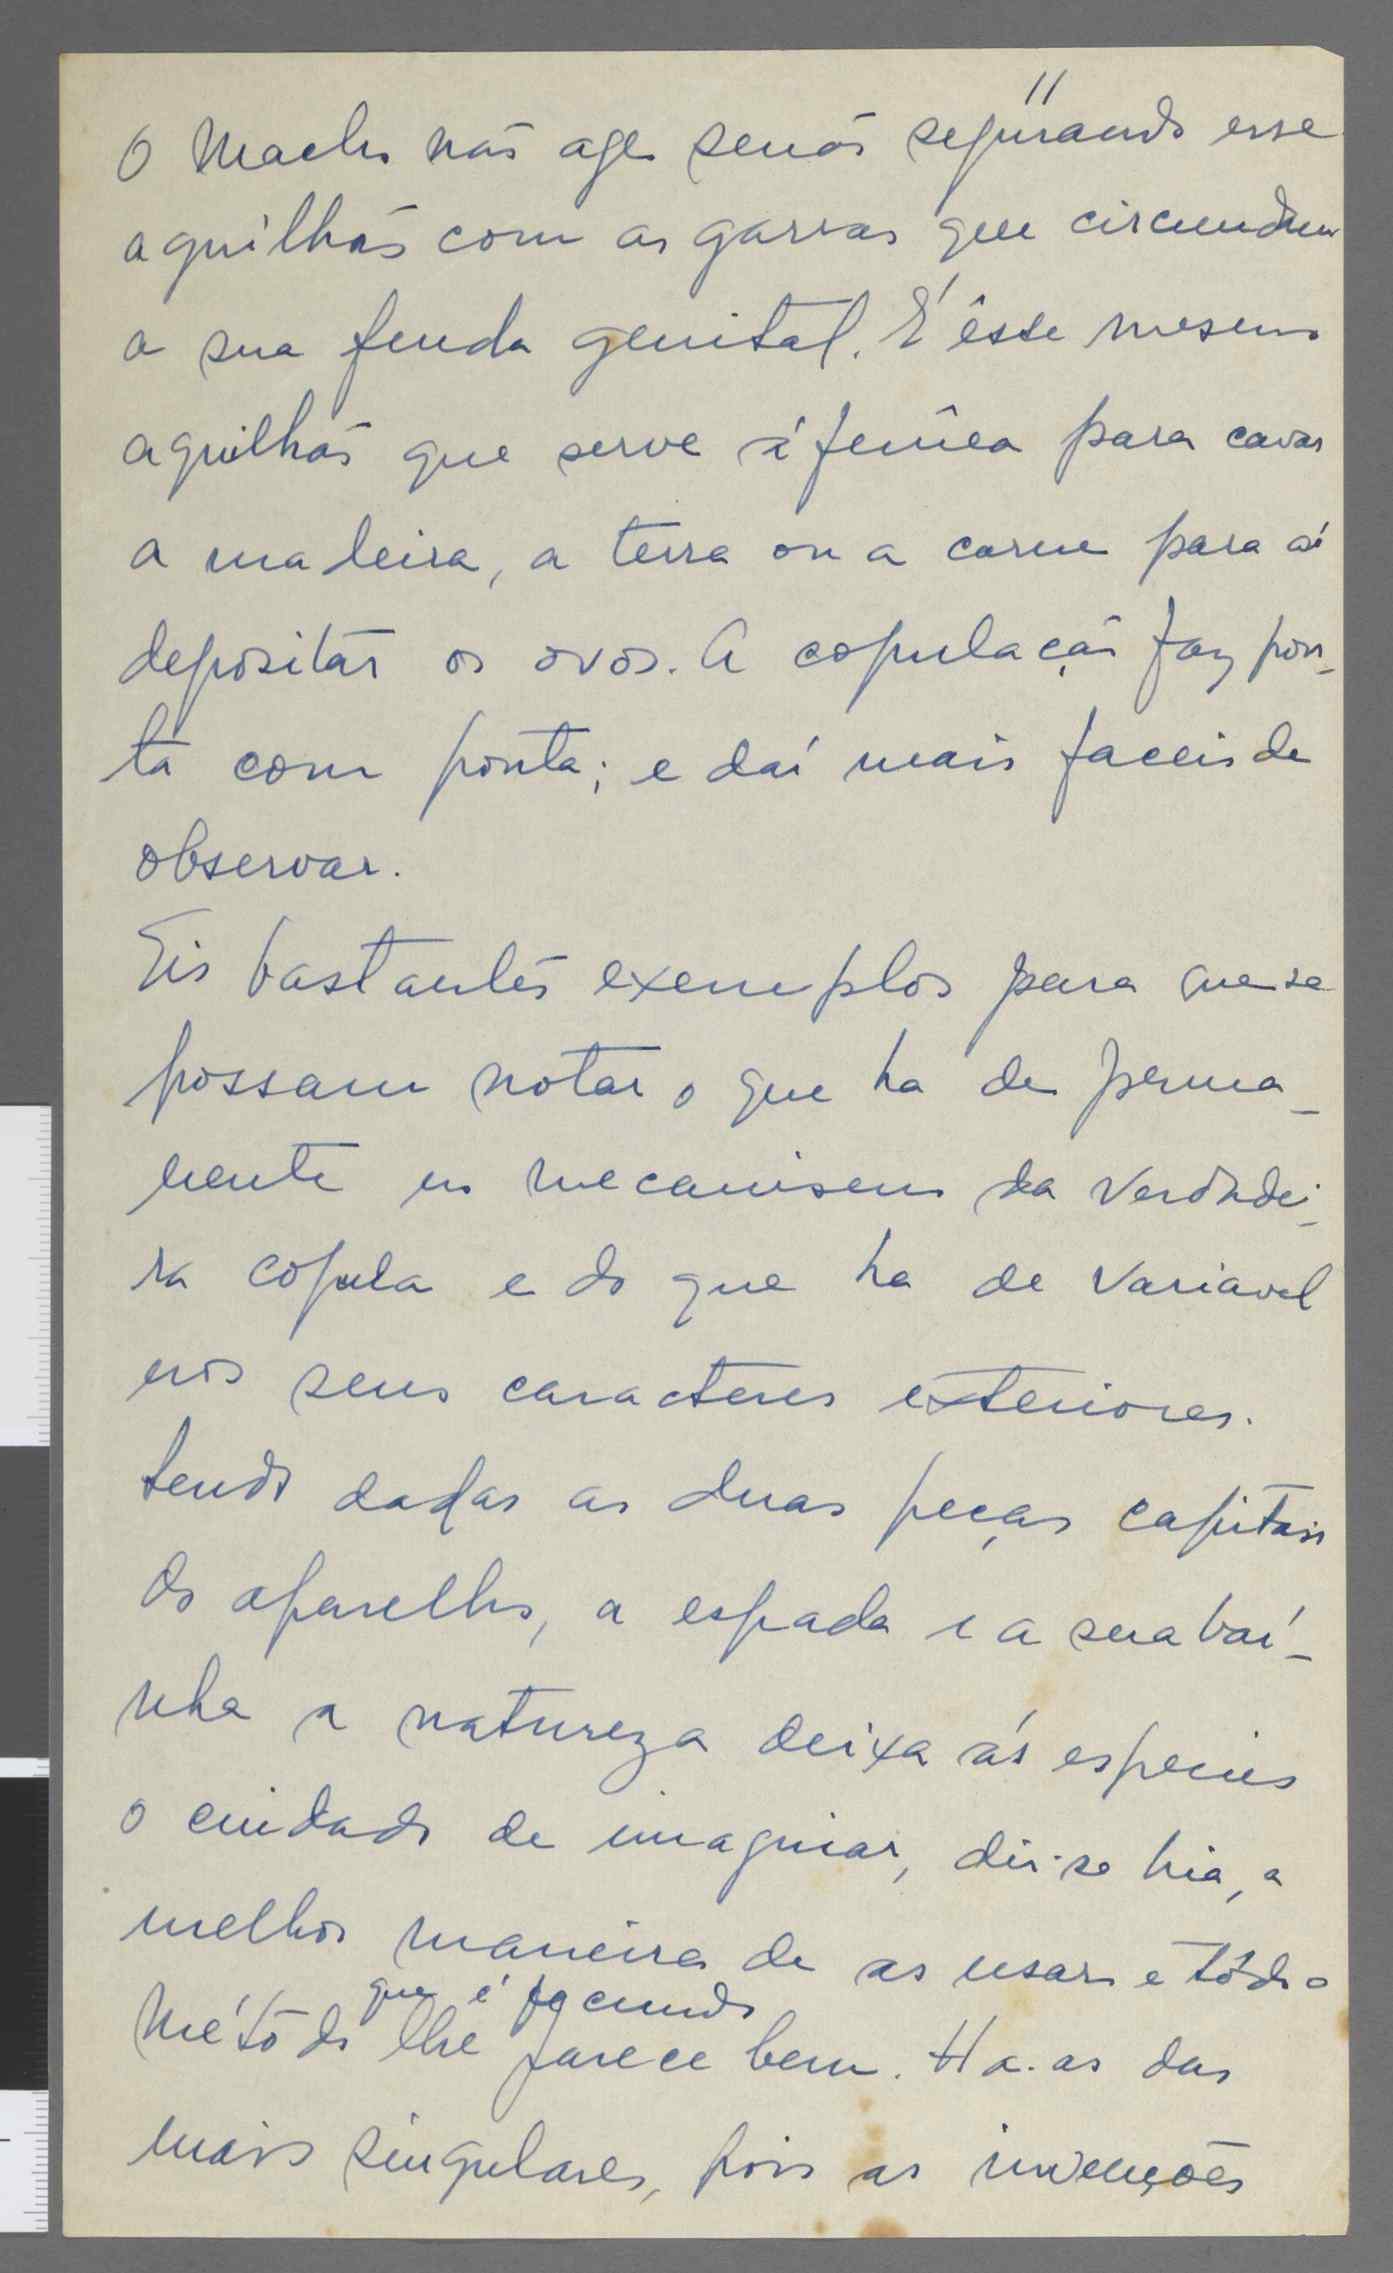 11
O macho não age senão segurando esse
aguilhão com as garras que circundam
a sua fenda genital. E' êsse mesmo
aguilhão que serve á femêa para cavar
a madeira, a terra ou a carne para aí
depositar os ovos. A copulação faz pon-
ta com ponta; e daí mais faceis de
observar.
Eis bastantes exemplos para que se
possam notar o que ha de perma-
nente no mecanismo da verdadei-
ra copula e do que ha de variavel
nos seus caracteres exteriores.
tendo dadas as duas peças capitais
do aparelho, a espada e a sua baí-
nha a natureza deixa ás especies
o cuidado de imaginar, dir-se hia, a
melhor maneira de as usar e todo o
que é fecundo
método lhe parece bem. Ha-as das
mais singulares, pois as invenções